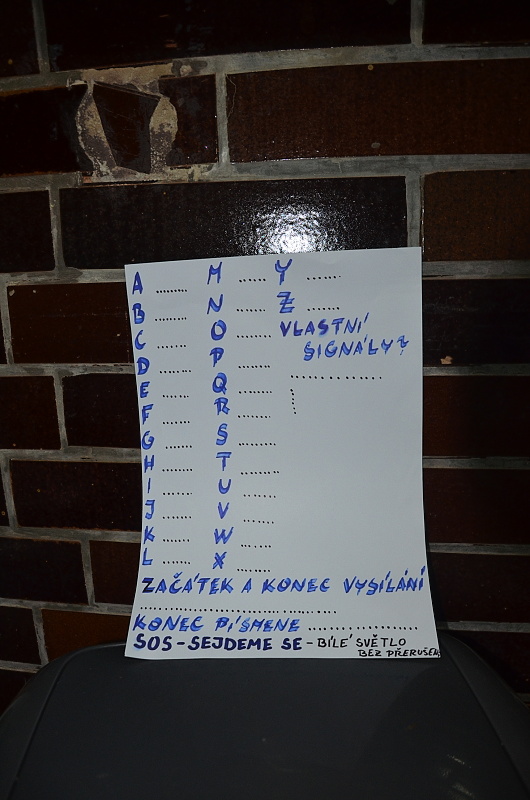 A ........
B .......
C .......
D .......
E .......
F .......
G .......
H .......
I .......
J .......
K .......
L .......
M .......
N .......
O .......
P .......
Q .......
R .......
S ........
T ........
U .......
V .......
W .......
X .......
Y .......
Z .......
VLASTNÍ
SIGNÁLY?
..................
ZAČÁTEK A KONEC VYSÍLÁNÍ
....................................
KONEC PÍSMENE ........................
SOS - SEJDEME SE - BÍLÉ SVĚTLO
BEZ PŘERUŠENÍ